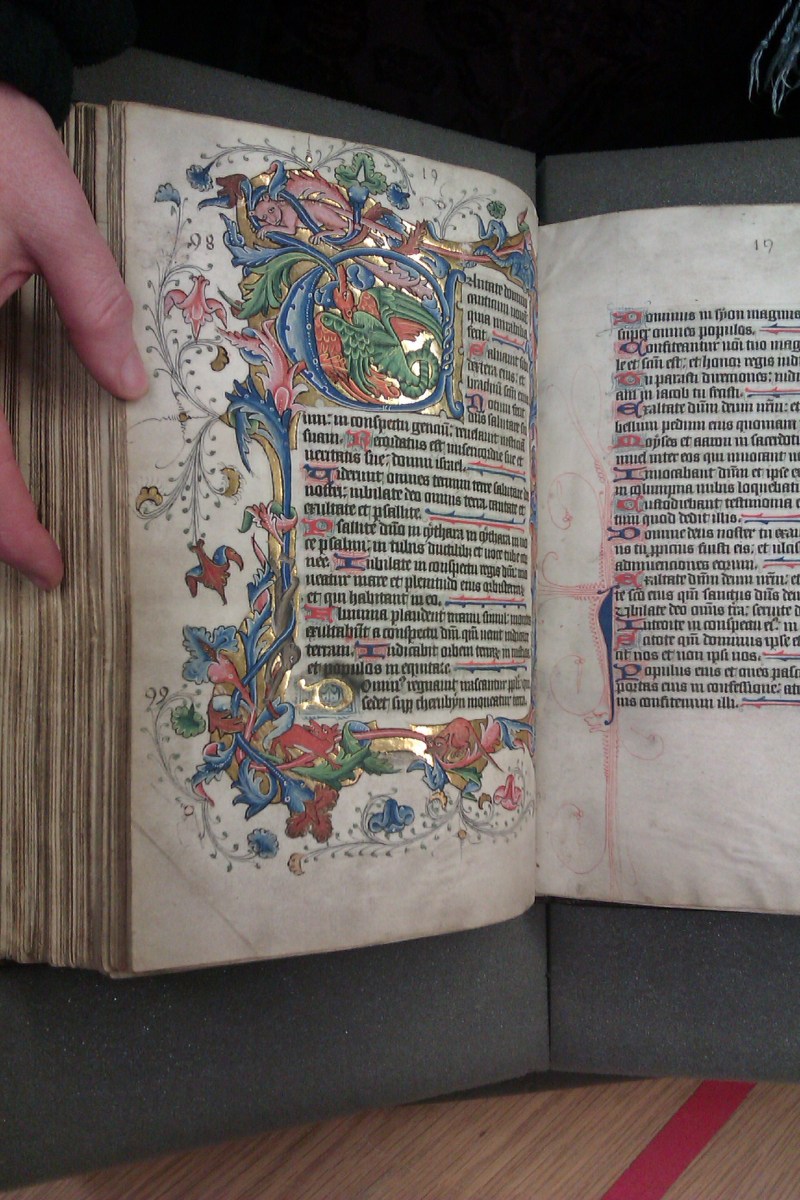 19
98
Cantate domino
canticum novu
quia mirabilia
fecit.
Salvavit sibi
dextera eius: et
brachiū sc̄m eius
Notum fecit
dn̄s salutare su
um: in conspectu genciū; revelavit iusticiā
suam. Recordatus est misericordie sue et
veritatis sue; domui israel.
Viderunt omnes termini terre salutare dei
nostri: iubilate deo omnis terra cantate et
exultate et psallite.
Psallite dn̄o in cythara in cythara et vo
ce psalmi; in tubis ductilib; et voce tube cor
nee. Iubilate in conspectu regis dn̄i; mo
veatur mare et plenitudo eius orbis terrarū
et qui habitant in eo.
Flumina plaudent manu simul montes
exultabūt a conspectu dn̄i; qm̄ venit iudicare
terram. Iudicabit orbem terrarū in iusticia
et populos in equitate.
99
Dominꝰ regnavit irascantur ppl̄i; qui
sedet sup cherubyn moveatur terra.
19
Dominus in syon magnus
super omnes populos.
Confiteantur noī tuo mag
le et sc̄m est; et honor regis iudi
Tu parasti direcciones: iudi
am in iacob tu fecisti.
Exaltate dn̄m deum nr̄m: et
bellum pedum eius quoniam
Moyses et aaron in sacerdoti
muel inter eos qui invocant n
Invocabant dn̄m et ipse ex
in columpna nubis loquebat
Custodiebant testimonia e
tum quod dedit illis.
Domine deus noster tu exau
ns tu propicius fuisti eis; et ulcis
adinvenciones eorum.
Exaltate dn̄m deum nr̄m: et
te sc̄o eius qm̄ sanctus dn̄s deu
Iubilate deo om̄is t̄ra; servite d
Introite in conspectu eiꝰ; in
Scitote qm̄ dominus ipse e
cit nos et non ipsi nos.
Populus eius et oves pasc
portas eius in confessione; atri
nis confitemini illi.